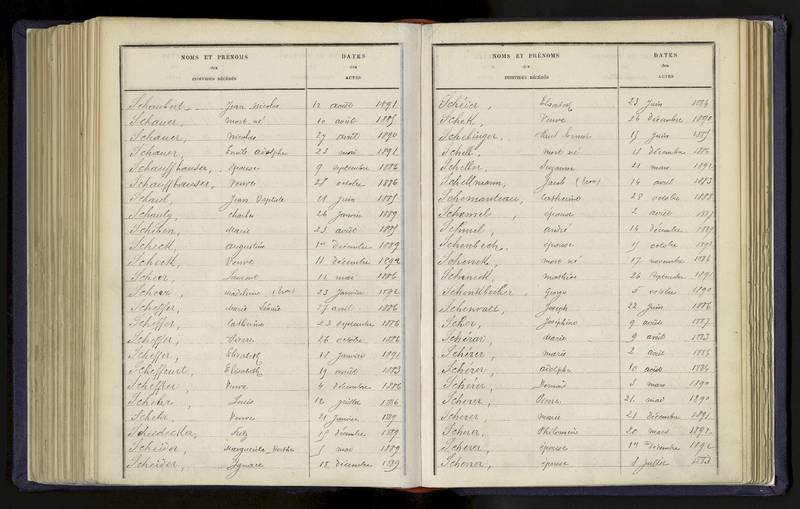 NOMS ET PRÉNOMS DATES
des des
INDIVIDUS DÉCÉDÉS ACTES
Schaubert Jean Nicolas 12 août 1891
Schauer, mort né 10 août 1885
Schauer, Nicolas 27 août 1890
Schauer, Emile Adolphe 23 mai 1891
Schauffhauser, épouse 9 septembre 1886
Schauffhauser, Veuve 28 octobre 1886
Jean Baptiste juin 1885
Charles 26 janvier 1889
Marie 23 août
Scheck, Augustine 1er Décembre 1889
Scheck, Veuve 11 Décembre 1892
Scheer, Laurent 12 mai 1886
Scheer, Madeleine 23 janvier 1892
Scheffer, Marie 27 avril 1886
Scheffer, Catherine 23 septembre 1886
Scheffer, Pierre 26 octobre 1886
Scheffer, Elisabeth 18 janvier 1891
Scheffeurt, Elisabeth 19 août 1883
Scheffler, Veuve 4 décembre 1886
Schehr, Louis 12 juillet 1886
Schehr, Veuve 21 janvier 1889
décembre 1889
Scheider, Marguerite Berthe 5 mai 1889
Scheider, 15 décembre 1889
NOMS ET PRÉNOMS DATES
des des
INDIVIDUS DÉCÉDÉS ACTES
Scheier, Elisabeth 23 juin 1884
Veuve 26 décembre 1890
Schelinger, 15 juin 1885
Schell, mort né 13 décembre 1886
Scheller, Suzanne 21 mars 1892
Schellmann, Jacob 14 avril 1883
Schemanteau, Catherine 28 octobre 1888
Schemel, épouse 2 août 1887
Schmel, André 14 Décembre 1889
Schenbech, épouse 15 octobre
Schenck, mort né 17 novembre 1886
Schenck, Mathias 26 septembre 1891
Schenckbecker, 5 octobre 1890
Joseph 22 juin 1886
Scher, Joséphine 9 août 1887
Schérar, Marie 9 août 1883
Schérer, Marie 2 août 1884
Schérer, Adolphe 10 août 1884
Scherer, Bernard 3 mars 1890
Scherer, 21 mai 1890
Scherer, Marie 21 décembre 1891
Scherer, Philomène 20 mars 1892
Scherer, épouse 1er décembre 1892
épouse 8 juillet